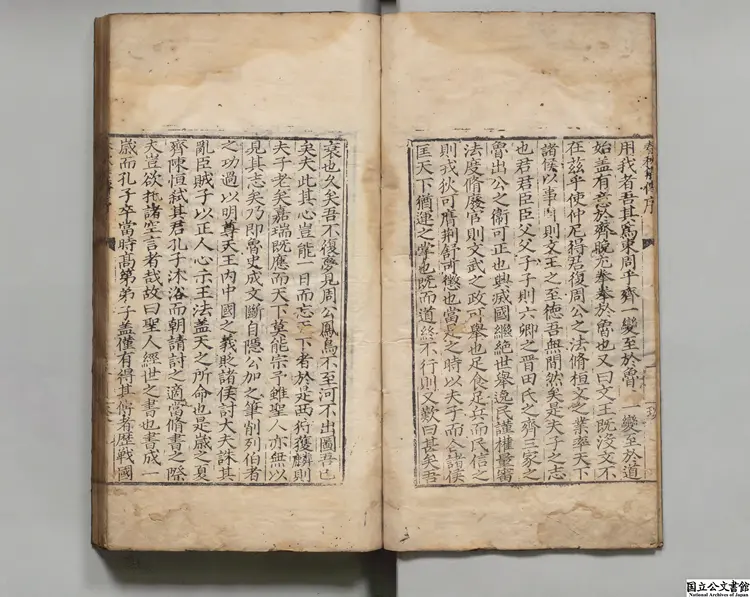 用我者吾其爲東周乎齊一變至於魯 變至於道
始蓋有意於齊晚尤拳拳於魯也又曰文王既没文不
在兹乎使仲尼得君復周公之法脩桓文之業率天下
諸侯以事 則文王之至德吾無間然矣是夫子之志
也君君臣臣父父子子則六卿之晋田氏之齊三家之
魯出公之衛可正也興滅國繼絶世舉逸民謹權量審
法度脩廢官則文武之政可舉也足食足兵而民信之
則戎狄可膺荆舒可懲也當是之時以夫子而令諸侯
匡天下猶運之掌也既而道終不行則又歎曰甚矣吾
衰也久矣吾不復夢見周公鳳鳥不至河不出圖吾已
矣夫此其心豈能一日而忘天下者於是西狩獲麟則
夫子老矣嘉瑞既應而天下莫能宗予雖聖人亦無以
見其志矣乃即魯史成文斷自隱公加之筆削列伯者
之功過以明尊天王内中國之義貶諸侯討大夫誅其
亂臣賊子以正人心示王法蓋天之所命也是歲之夏
齊陳恒弑其君孔子沐浴而朝請討之適當脩書之際
夫豈欲托諸空言者哉故曰聖人經世之書也書成一
歲而孔子卒當時高第弟子蓋僅有得其傳者歷戰國
国立公文書館
National Archives of Japan